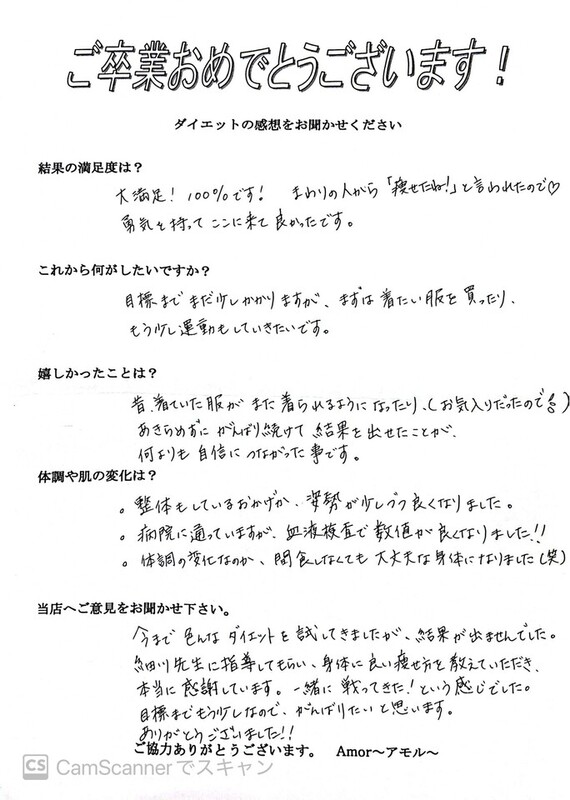 ご卒業おめでとうございます！
ダイエットの感想をお聞かせください
結果の満足度は？
大満足！ 100%です！ まわりの人から「痩せたね!」と言われたので♡
勇気を持ってここに来て良かったです。
これから何がしたいですか？
目標までまだ少しかかりますが、まずは着たい服を買ったり、
もう少し運動もしていきたいです。
嬉しかったことは？
昔、着ていた服がまた着られるようになったり、(お気入りだったので♪)
あきらめずにがんばり続けて結果を出せたことが、
何よりも自信につながった事です。
体調や肌の変化は？
。整体もしているおかげか、姿勢が少しづつ良くなりました。
。病院に通っていますが、血液検査で数値が良くなりました!!
。体調の変化なのか、間食しなくても大丈夫な身体になりました(笑)
当店へご意見をお聞かせ下さい。
今まで色んなダイエットを試してきましたが、結果が出ませんでした。
細川先生に指導してもらい、身体に良い痩せ方を教えていただき、
本当に感謝しています。一緒に戦ってきた！という感じでした。
目標までもう少しなので、がんばりたいと思います。
ありがとうございました!!
ご協力ありがとうございます。 Amor～アモル～
CS CamScannerでスキャン